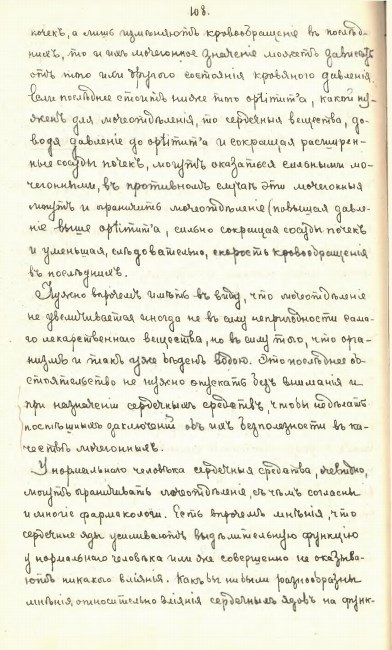 108.
почекъ, а лишь измѣняютъ кровообращеніе въ послѣд-
нихъ, то и ихъ мочегонное значеніе можетъ зависѣть
отъ того или другого состоянія кровяного давленія.
Если послѣднее стоитъ ниже того optimum'а, какой ну-
женъ для мочеотдѣленія, то сердечныя вещества, до-
водя давленіе до optimum'а и сокращая расширен-
ные сосуды почекъ, могутъ оказаться сильными мо-
чегонными, въ противномъ случаѣ эти мочегонныя
могутъ и ограничить мочеотдѣленіе (повышая давле-
ніе выше optimum'а, сильно сокращая сосуды почекъ
и уменьшая, слѣдовательно, скорость кровообращенія
въ послѣднихъ.
Нужно впрочемъ имѣть въ виду, что мочеотдѣленіе
не увеличивается иногда не въ силу непригодности само-
го лекарственнаго вещества, но въ силу того, что орга-
низмъ и такъ уже бѣденъ водою. Это послѣднее об-
стоятельство не нужно опускать безъ вниманія и
при назначеніи сердечныхъ средствъ, чтобы не дѣлать
поспѣшныхъ заключеній объ ихъ безполезности въ ка-
чествѣ мочегонныхъ.
У нормальнаго человѣка сердечныя средства, очевидно,
могутъ ограничивать мочеотдѣленіе, съ чѣмъ согласны
и многіе фармакологи. Есть впрочемъ мнѣнія, что
сердечные яды усиливаютъ выдѣлительную функцію
у нормальнаго человѣка или же совершенно не оказыва-
ютъ никакого вліянія. Какъ бы ни были разнообразны
мнѣнія относительно вліянія сердечныхъ ядовъ на функ-